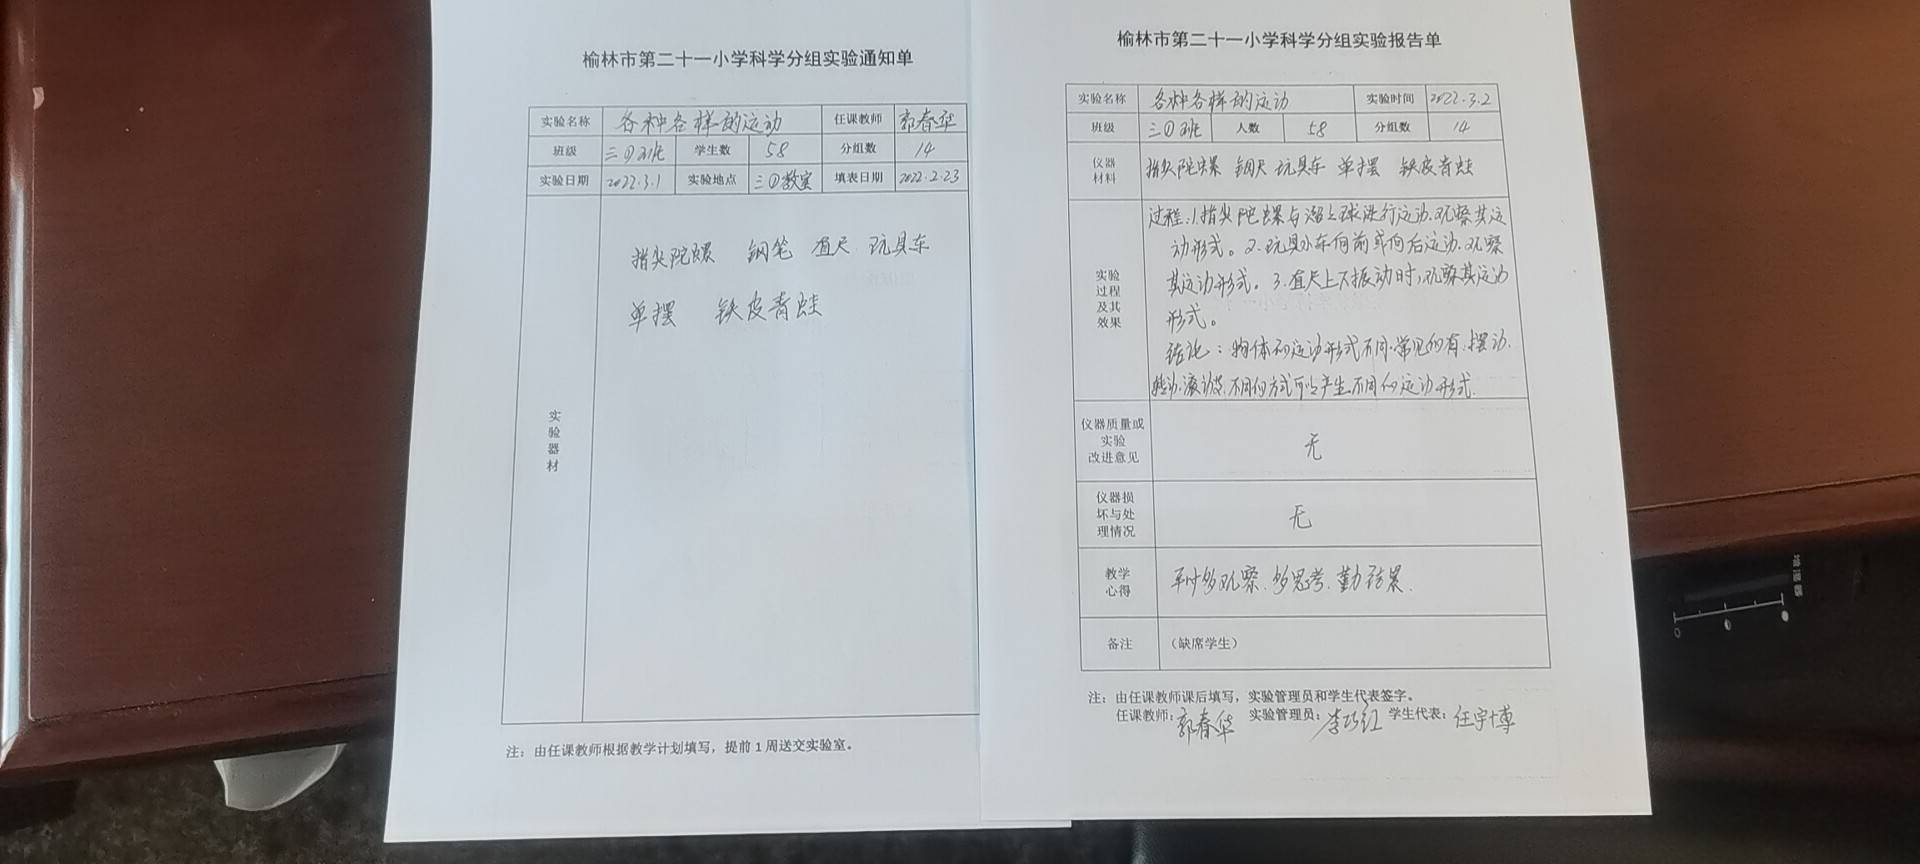 榆林市第二十一小学科学分组实验通知单
实验名称 各种各样的运动 任课教师 郭春华
班级 三①班 学生数 58 分组数 14
实验日期 2022.3.1 实验地点 三①教室 填表日期 2022.2.23
实验器材
指尖陀螺 钢笔 直尺 玩具车
单摆 铁皮青蛙
注：由任课教师根据教学计划填写，提前1周送交实验室。
榆林市第二十一小学科学分组实验报告单
实验名称 各种各样的运动 实验时间 2022.3.2
班级 三①班 人数 58 分组数 14
仪器材料 指尖陀螺 钢尺 玩具车 单摆 铁皮青蛙
实验过程及其效果
过程：1.指尖陀螺与溜溜球进行运动.观察其运
动形式。2.玩具小车向前或向后运动.观察
其运动形式。3.直尺上下振动时,观察其运动
形式。
结论：物体的运动形式不同.常见的有.摆动.
转动.滚动等.不同的方式可以产生不同的运动形式.
仪器质量或实验改进意见 无
仪器损坏与处理情况 无
教学心得 平时多观察.多思考.勤结累.
备注 （缺席学生）
注：由任课教师课后填写，实验管理员和学生代表签字。
任课教师：郭春华 实验管理员：李巧红 学生代表：任宇博